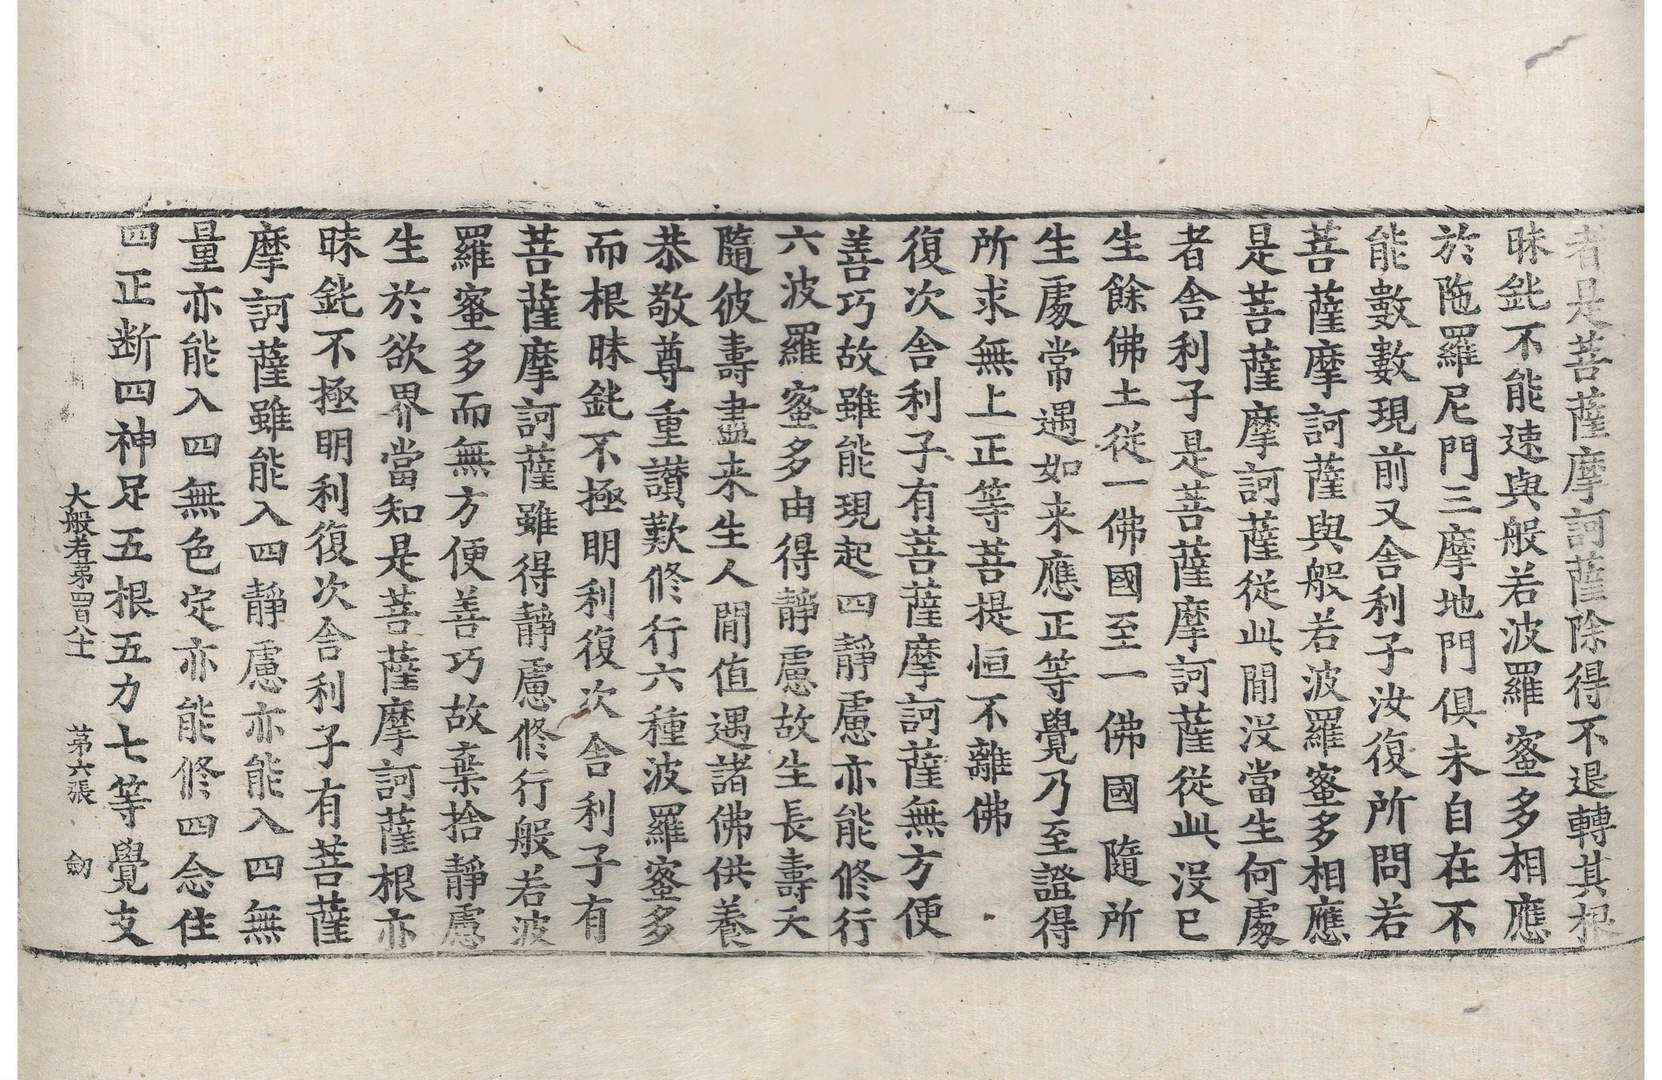 者是菩薩摩訶薩除得不退轉其根
昧鈍不能速與般若波羅蜜多相應
於陁羅尼門三摩地門俱未自在不
能數數現前又舍利子汝復所問若
菩薩摩訶薩與般若波羅蜜多相應
是菩薩摩訶薩從此閒沒當生何處
者舍利子是菩薩摩訶薩從此沒已
生餘佛土從一佛國至一佛國隨所
生處常遇如来應正等覺乃至證得
所求無上正等菩提恒不離佛
復次舍利子有菩薩摩訶薩無方便
善巧故雖能現起四靜慮亦能修行
六波羅蜜多由得靜慮故生長壽天
隨彼壽盡来生人閒值遇諸佛供養
恭敬尊重讃歎修行六種波羅蜜多
而根昧鈍不極明利復次舍利子有
菩薩摩訶薩雖得靜慮修行般若波
羅蜜多而無方便善巧故棄捨靜慮
生於欲界當知是菩薩摩訶薩根亦
昧鈍不極明利復次舍利子有菩薩
摩訶薩雖能入四靜慮亦能入四無
量亦能入四無色定亦能修四念住
四正断四神足五根五力七等覺支
大般若第四百八十一 第六張 劒